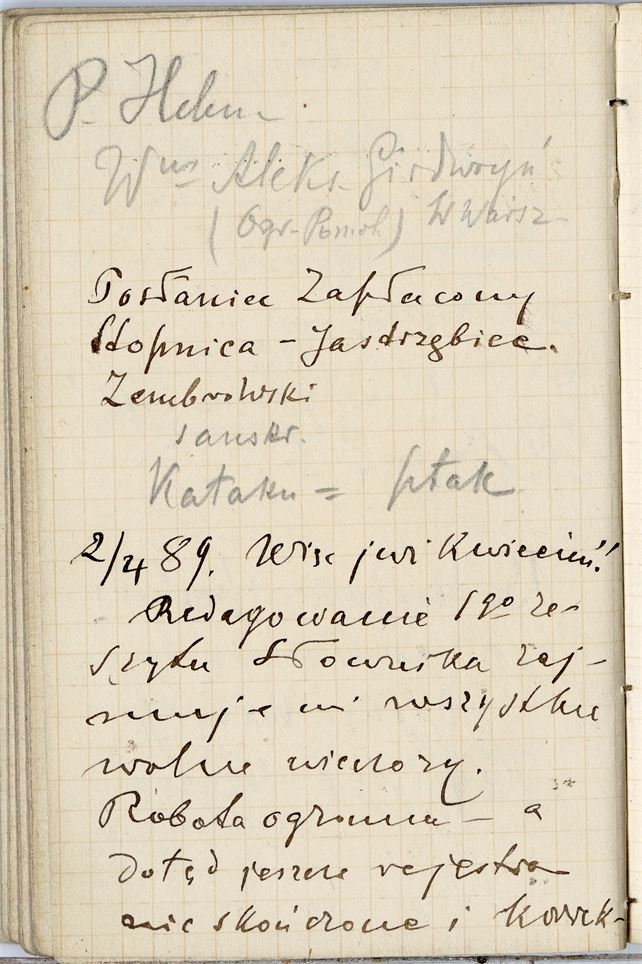 P. Helen-
Wny Aleks. Girdwoyń
(Ogr-Pomol) W Warsz-
Posłaniec Zapłacony
Stopnica - Jastrzębiec.
Zembrowski
sanskr.
Kataku = ptak
2/4 89. Więc już Kwiecień!
Redagowanie 1go ze-
szytu Słownika zaj-
muje mi wszystkie
wolne wieczory.
Robota ogromna - a
dotąd jeszcze rejestra
nie skończone i korek-